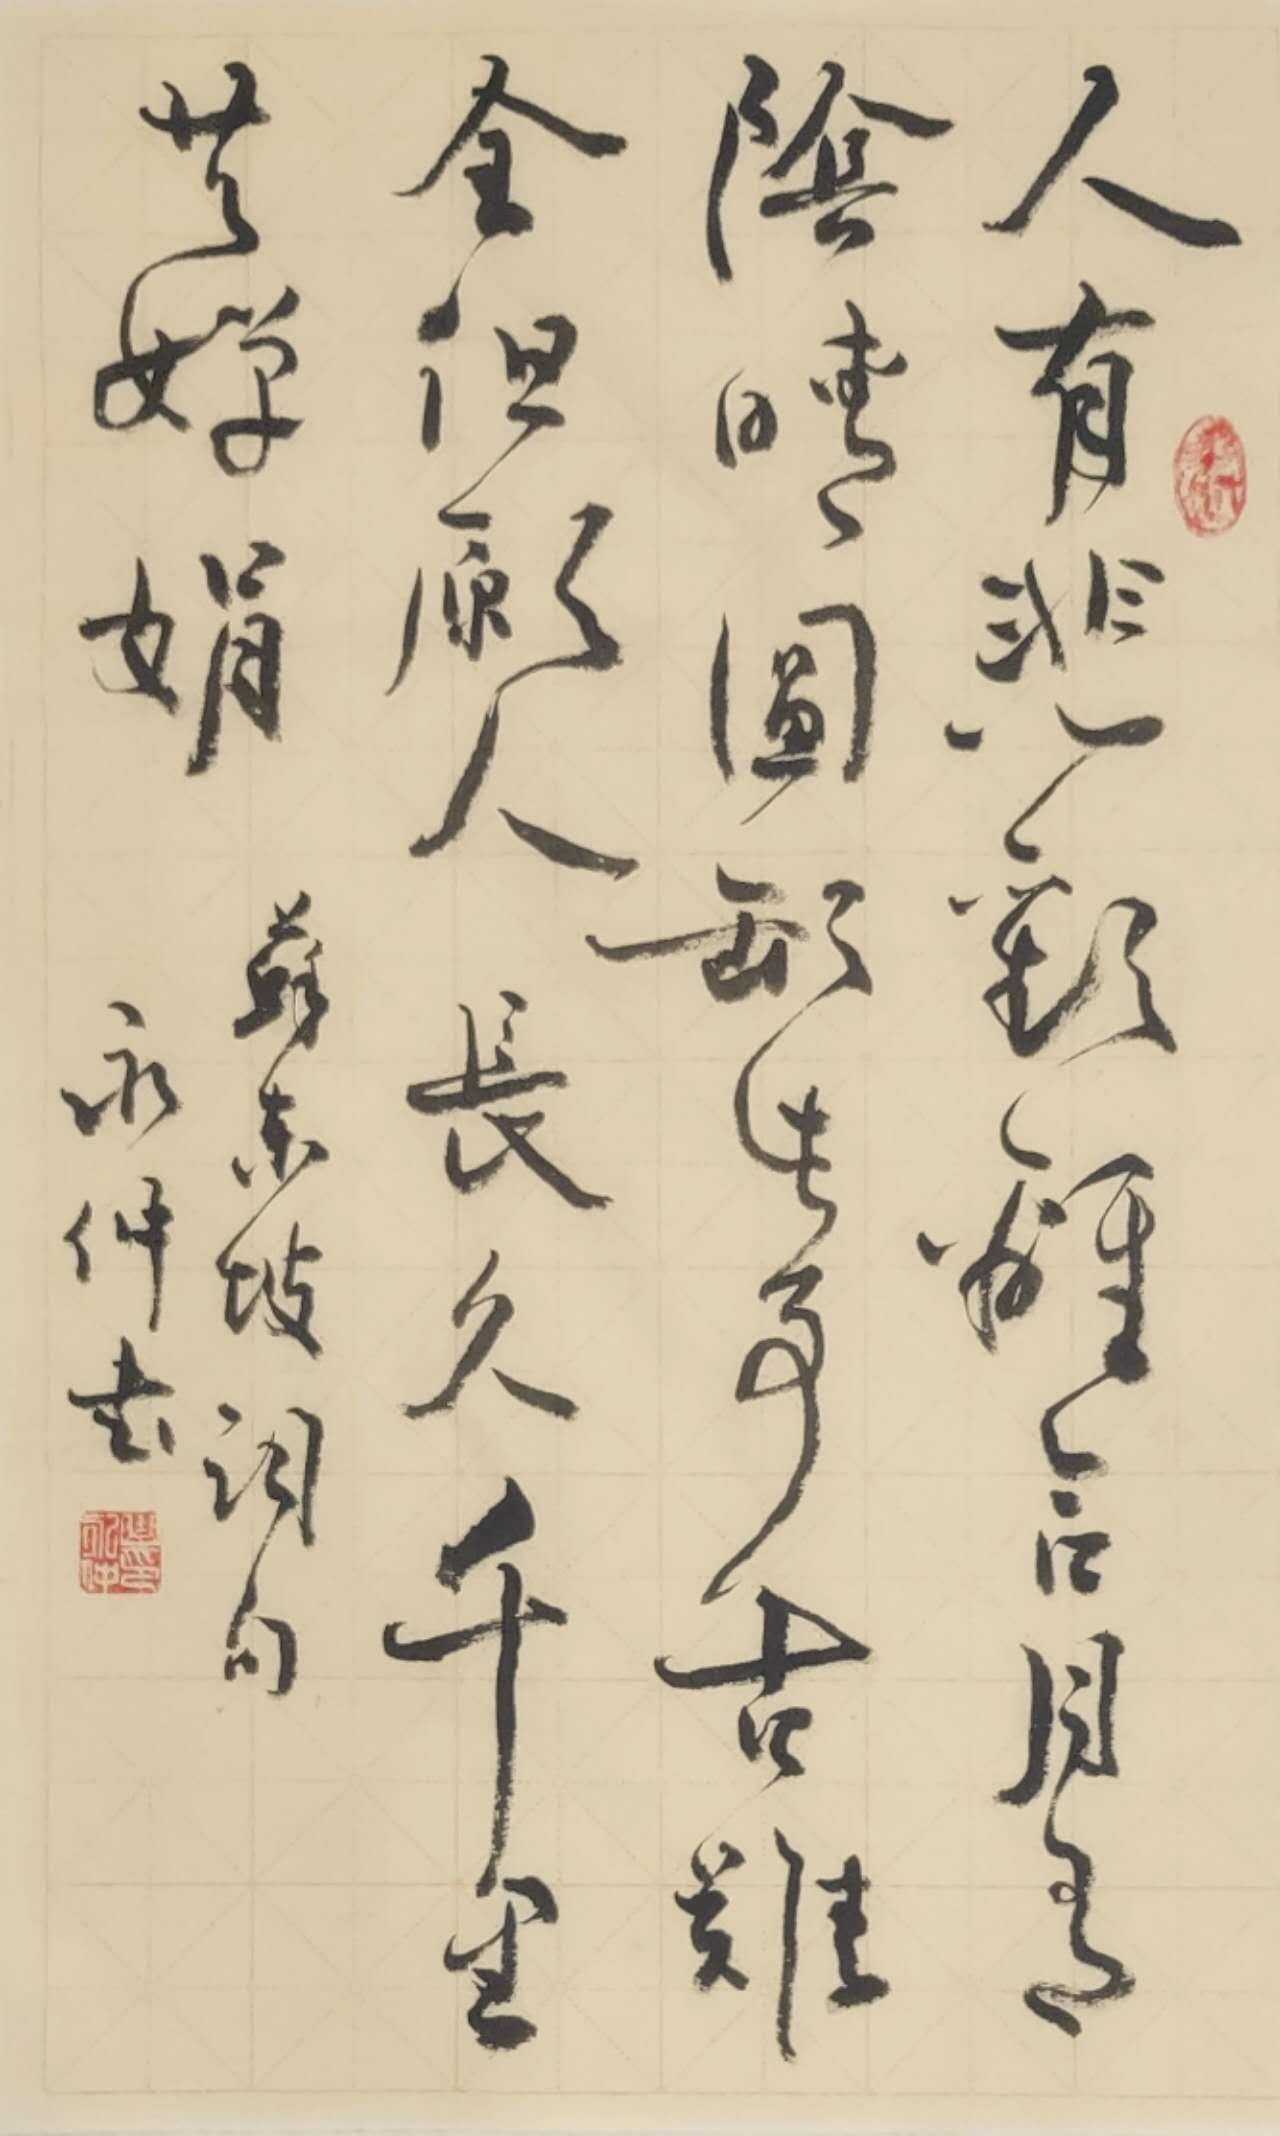 人有悲歡離合月有
陰晴圓缺此事古難
全但願人長久千里
共嬋娟
蘇東坡詞句
永仲書